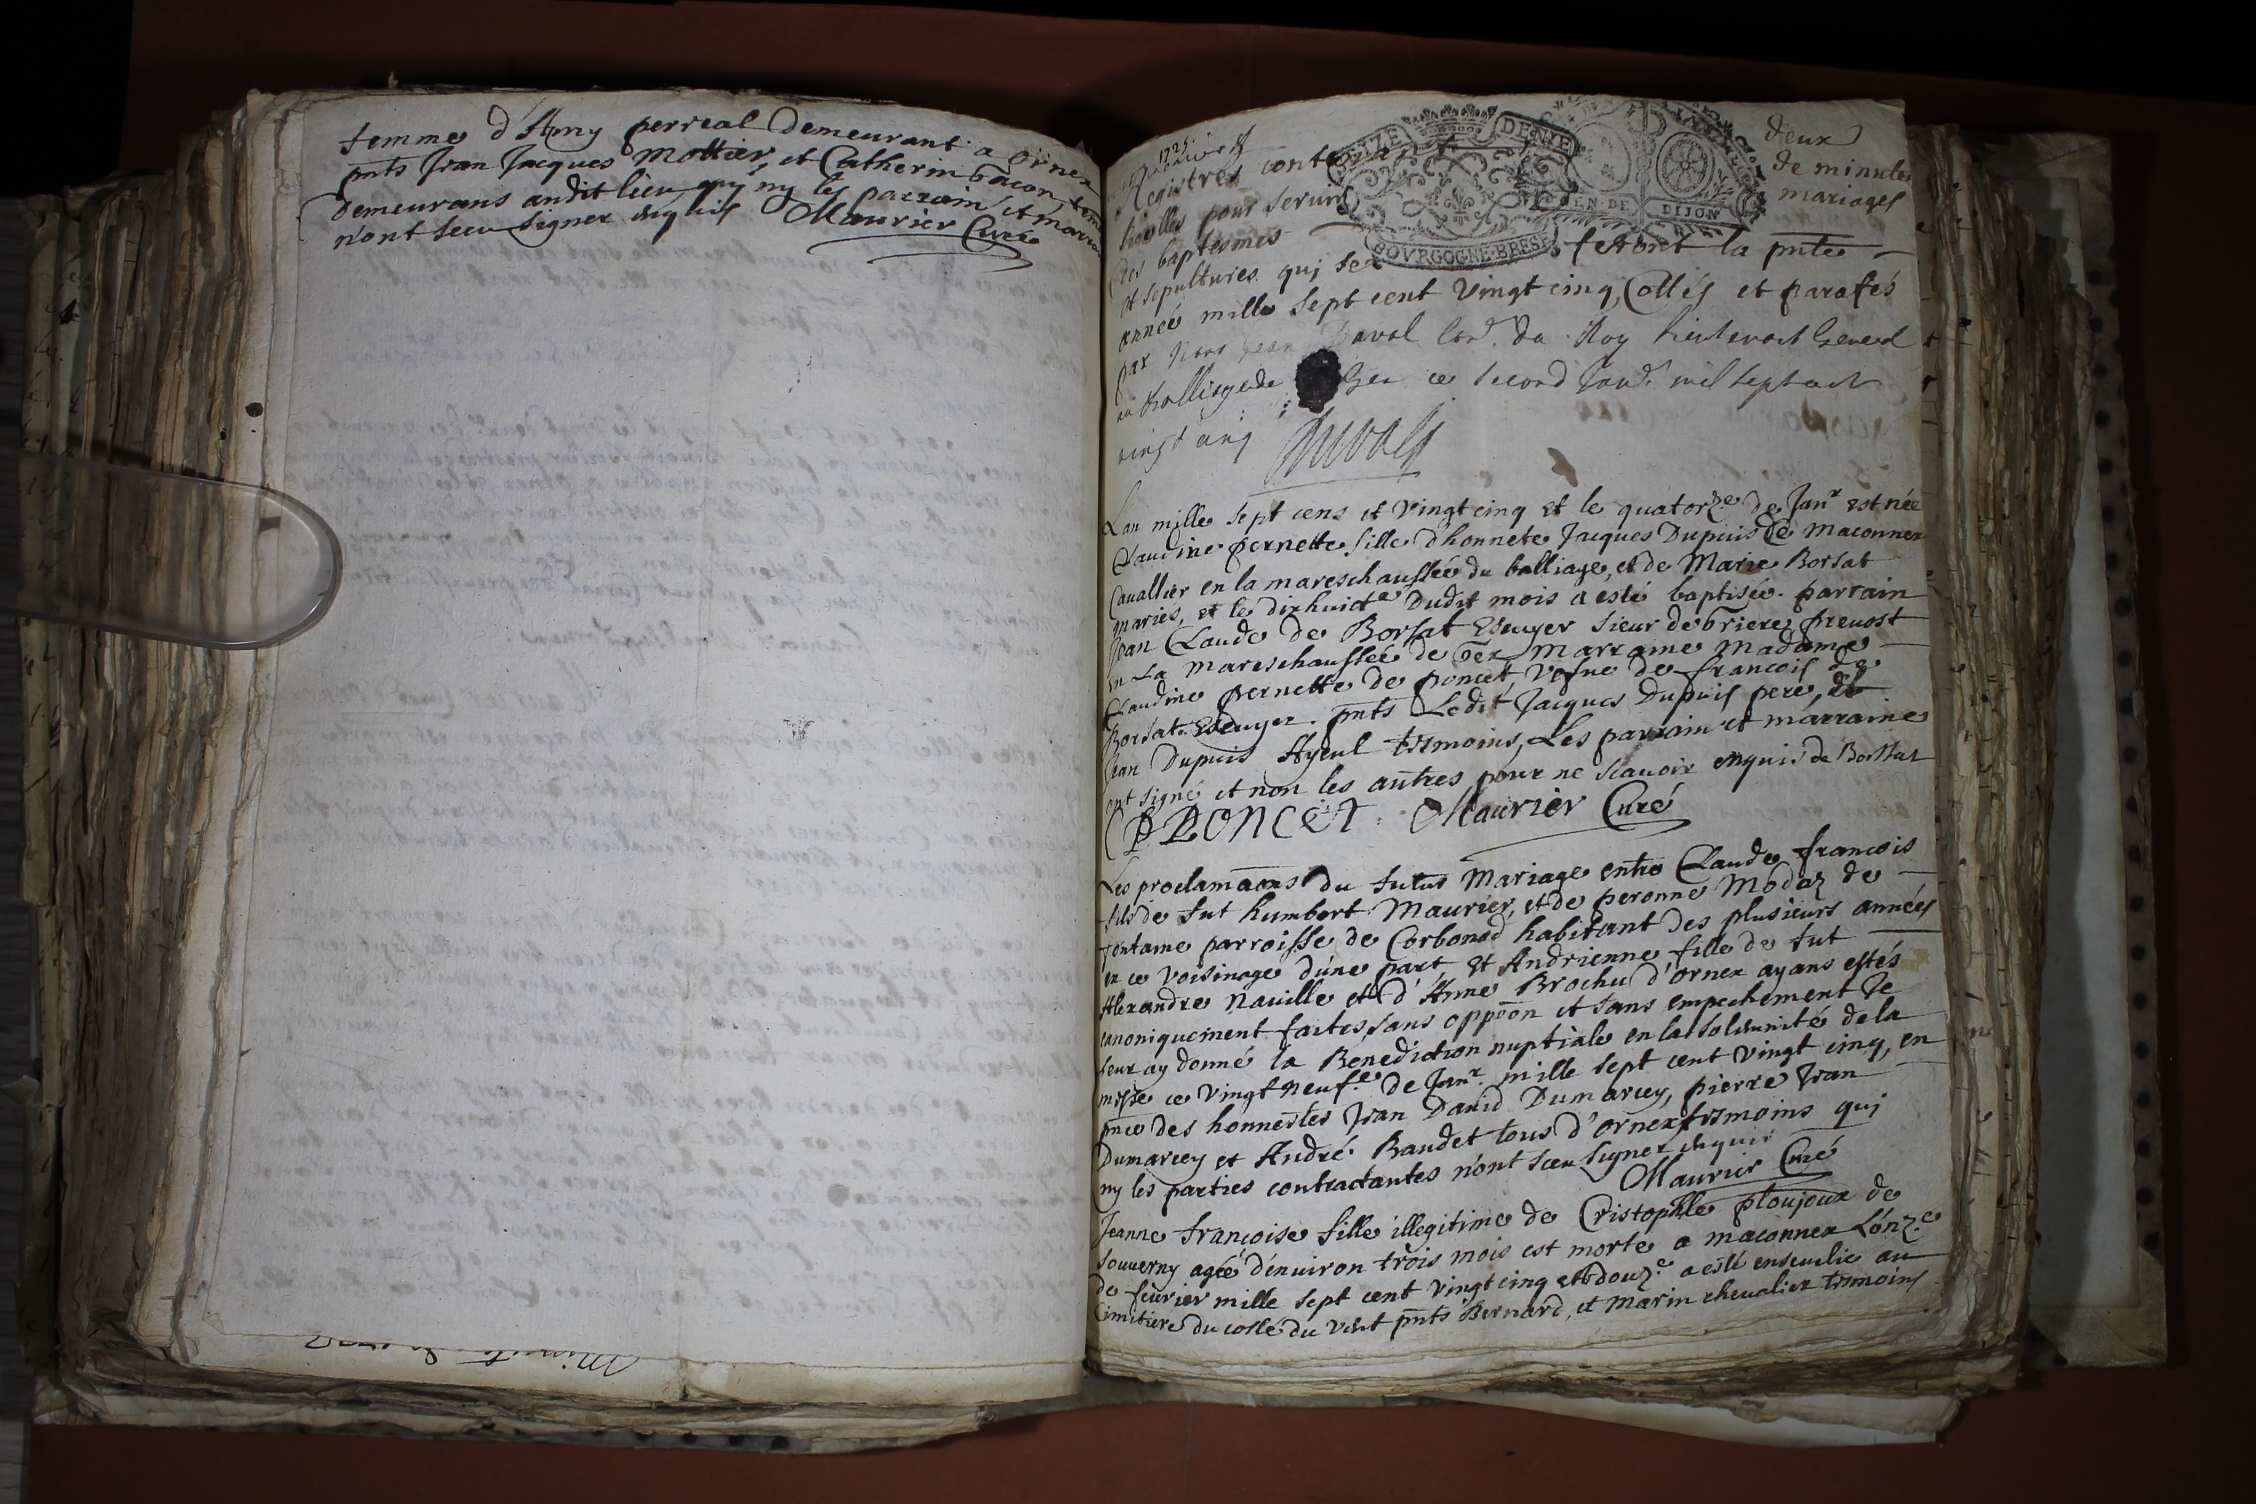 femme d'Amy perreal demeurant a Ornex
pnts Jean Jacques Mottier, et Catherin bacon,
demeurans audit lieu qui ny les parrain, et marraine
n'ont sceu signer enquis Maurier Curé
1725.
Registres contenant deux
fueilles pour servir de minutes
des baptesmes mariages
et sepultures qui se feront la pnte
année mille sept cent vingt cinq, Cottés et parafés
par Nous Jean Duval Con. du Roy Lieutenant General
au Balliage de Gex ce second Janv. mil sept cent
vingt cinq Duval
L'an mille sept cens et vingt cinq et le quatorze de Janr est née
Claudine pernette fille d'honnete Jacques Dupuis de maconnex
Cavallier en la mareschaussée du balliage, et de Marie Borsat
mariés, et le dixhuicte dudit mois a esté baptisée. parrain
Jean Claude de Borsat Escuyer sieur de briere prevost
en La mareschaussée de Gex, Marraine Madame
Claudine pernette de poncet vefve de françois de
Borsat Escuyer. pnts Ledit Jacques Dupuis pere, et
Jean Dupuis Ayeul tesmoins, Les parrain et marraine
ont signé et non les autres pour ne scavoir enquis de Borssat
C P PONCET. Maurier Curé
Les proclamaons du futur Mariage entre Claude françois
fils de fut humbert Maurier, et de peronne Modaz de
fontame parroisse de Corbonod habitant des plusieurs années
en ce voisinage d'une part et Andrienne fille de fut
Alexandre Naville et d'Anne Brochu d'Ornex ayans estés
canoniquement faites sans oppoon et sans empechement Je
leur ay donné la Benediction nuptiale en la solemnité de la
messe ce vingt neufe de Janr. mille sept cent vingt cinq, en
pnce des honnestes Jean David Dumarcey, pierre Jean
Dumarcey et André Baudet tous d'Ornex tesmoins qui
ny les parties contractantes n'ont sceu signer enquis
Maurier Curé
Jeanne françoise fille illegitime de Cristophle ploujoux de
Souverny agée d'environ trois mois est morte a maconnex L'onze
de fevrier mille sept cent vingt cinq et le douze a esté ensevelie au
Cimitiere du costé du vent pnts Bernard, et Marin chevalier tesmoins